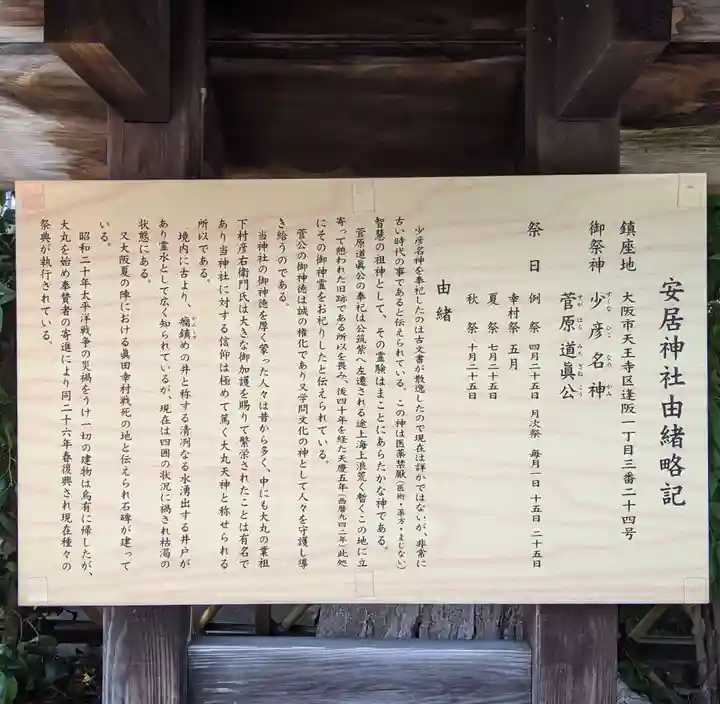 安居神社由緒略記
鎮座地 大阪市天王寺区逢阪一丁目三番二十四号
御祭神 少彦名神
すくな ひこ なの かみ
菅原道眞公
すが はら みち ざね こう
祭日 例祭 四月二十五日 月次祭 毎月一日 十五日 二十五日
幸村祭 五月
夏祭 七月二十五日
秋祭 十月二十五日
由緒
少彦名神を奉祀したのは古文書が散逸したので現在は詳かではないが、非常に
古い時代の事であると伝えられている。この神は医薬禁厭(医術・薬方・まじない)
智慧の祖神として、その霊験はまことにあらたかな神である。
菅原道眞公の奉祀は公筑紫へ左遷される途上海上浪荒く暫くこの地に立
寄って憩われた旧跡である所以を畏み、後四十年を経た天慶五年(西暦九四二年)此処
にその御神霊をお祀りしたと伝えられている。
菅公の御神徳は誠の権化であり又学問文化の神として人々を守護し導
き給うのである。
当神社の御神徳を厚く蒙った人々は昔から多く、中にも大丸の業祖
下村彦右衛門氏は大きな御加護を賜りて繁栄されたことは有名で
あり当神社に対する信仰は極めて篤く大丸天神と称せられる
所以である。
境内に古より、癇鎮めの井と称する清冽なる水湧出する井戸が
かんしづ
あり霊水として広く知られているが、現在は四囲の状況に禍され枯渇の
状態にある。
又大阪夏の陣における眞田幸村戦死の地と伝えられ石碑が建って
いる。
昭和二十年太平洋戦争の災禍をうけ一切の建物は烏有に帰したが、
大丸を始め奉賛者の寄進により同二十六年春復興され現在種々の
祭典が執行されている。